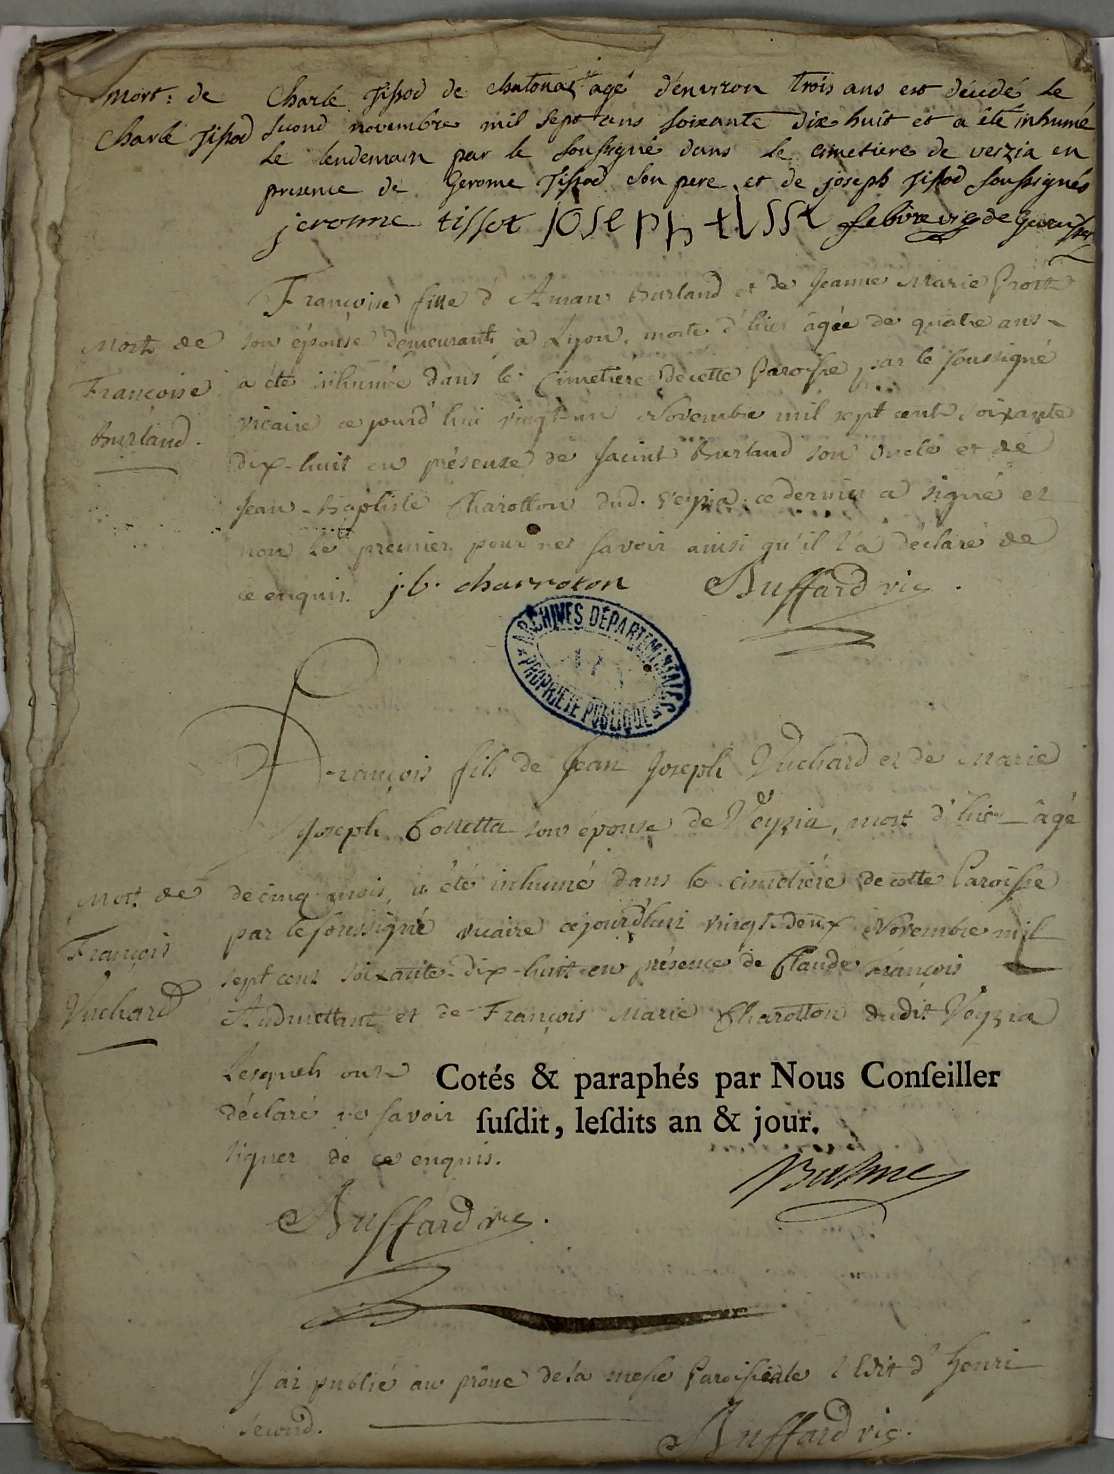 mort: de
Charle Tissod
Charle Tissod de chatonas agé d'environ trois ans est décédé le
scond novembre mil sept ans soixante dix huit et a été inhumé
le lendemain par le soussigné dans le cimetiere de verzia en
presence de Gerome Tissod son pere, et de joseph Tissod soussignés
jerosme tissot joseph tisst
Mort de
Françoise
Burland.
Françoise fille d'Aman Burland et de Jeanne Marie
son épouse demeurants à Lyon, morte d'hier âgée de quatre ans
a été inhumée dans le Cimetiére de cette Paroisse par le soussigné
vicaire ce jourd'hui vingt-un Novembre mil sept cent soixante
dix-huit en présence de Jacint Burland son oncle et de
Jean-Baptiste Charotton dud. Veyzia. ce dernier a signé et
non le premier pour ne savoir ainsi qu'il l'a déclaré de
ce enquis. j. b. charroton Buffard vic.
ARCHIVES DÉPARTEMENTALES
PROPRIÉTÉ PUBLIQUE
Mort de
François
Vuchard
François fils de Jean Joseph Vuchard et de Marie
Joseph Colletta son épouse de Veyzia, mort d'hier âgé
de cinq mois, a été inhumé dans le cimetiére de cette Paroisse
par le soussigné vicaire cejourd'hui vingt-deux Novembre mil
sept cent soixante-dix-huit en présence de Claude François
et de François Marie Charotton dudit Veyzia
Lesquels ont
déclaré ne savoir
signer de ce enquis.
Cotés & paraphés par Nous Conſeiller
ſuſdit, leſdits an & jour.
Buffard vic.
J'ai publié au prône de la messe Paroissiale l'Edit d'henri
second. Buffard vic.